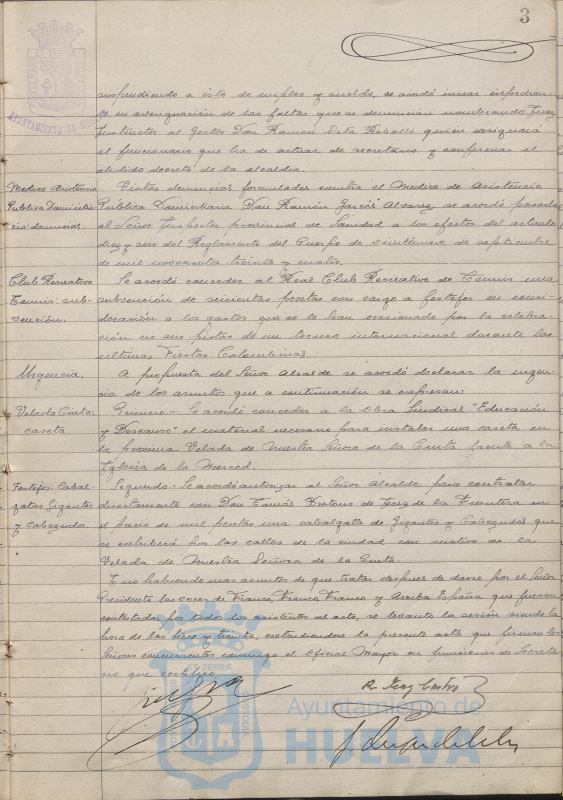 3
AYUNTAMIENTO DE
suspendiendo a éste de empleo y sueldo, se acordó incoar expedien-
te en averiguación de las faltas que se denuncian nombrando Juez
Instructor al Gestor Don Ramón Rebollo quien designará
el funcionario que ha de actuar de secretario y confirmar el
aludido decreto de la alcaldía.
Medico Asistencia
Publica Domicilia-
ria: denuncias.
Vistas denuncias formuladas contra el Medico de Asistencia
Pública Domiciliaria Don Ramón García Alvarez, se acordó pasarla
al Señor Inspector provincial de Sanidad a los efectos del articulo
diez y seis del Reglamento del Cuerpo de veintinueve de septiembre
de mil novecientos treinta y cuatro.
Club Recreativo
Tennis: sub-
vención.
Se acordó conceder al Real Club Recreativo de Tennis una
subvención de seiscientas pesetas con cargo a festejos en consi-
deración a los gastos que se le han ocasionado por la celebra-
ción en sus pistas de un torneo internacional durante las
ultimas Fiestas Colombinas.
Urgencia.
A propuesta del Señor Alcalde se acordó declarar la urgen-
cia de los asuntos que a continuación se expresan:
Velada Cinta:
caseta
Primero - Se acordó conceder a la Obra Sindical "Educación
y Descanso" el material necesario para instalar una caseta en
la proxima Velada de Nuestra Señora de la Cinta frente a la
Iglesia de la Merced.
Festejos: Cabal-
gatas Gigantes
y Cabezudos.
Segundo - Se acordó autorizar al Señor Alcalde para contratar
directamente con Don Tomás de Jerez de la Frontera en
el precio de mil pesetas una cabalgata de Gigantes y Cabezudos que
se exhibirá por las calles de la ciudad con motivo de la
Velada de Nuestra Señora de la Cinta.
Y no habiendo mas asuntos de que tratar despues de darse por el Señor
Presidente las voces de Franco, Franco, Franco y Arriba España que fueron
contestadas por todos los asistentes al acto, se levanto la sesión siendo la
hora de las trece y treinta, extendiendose la presente acta que firman los
Señores concurrentes conmigo el Oficial Mayor en funciones de Secreta-
rio que certifico.
Ayuntamiento de
HUELVA